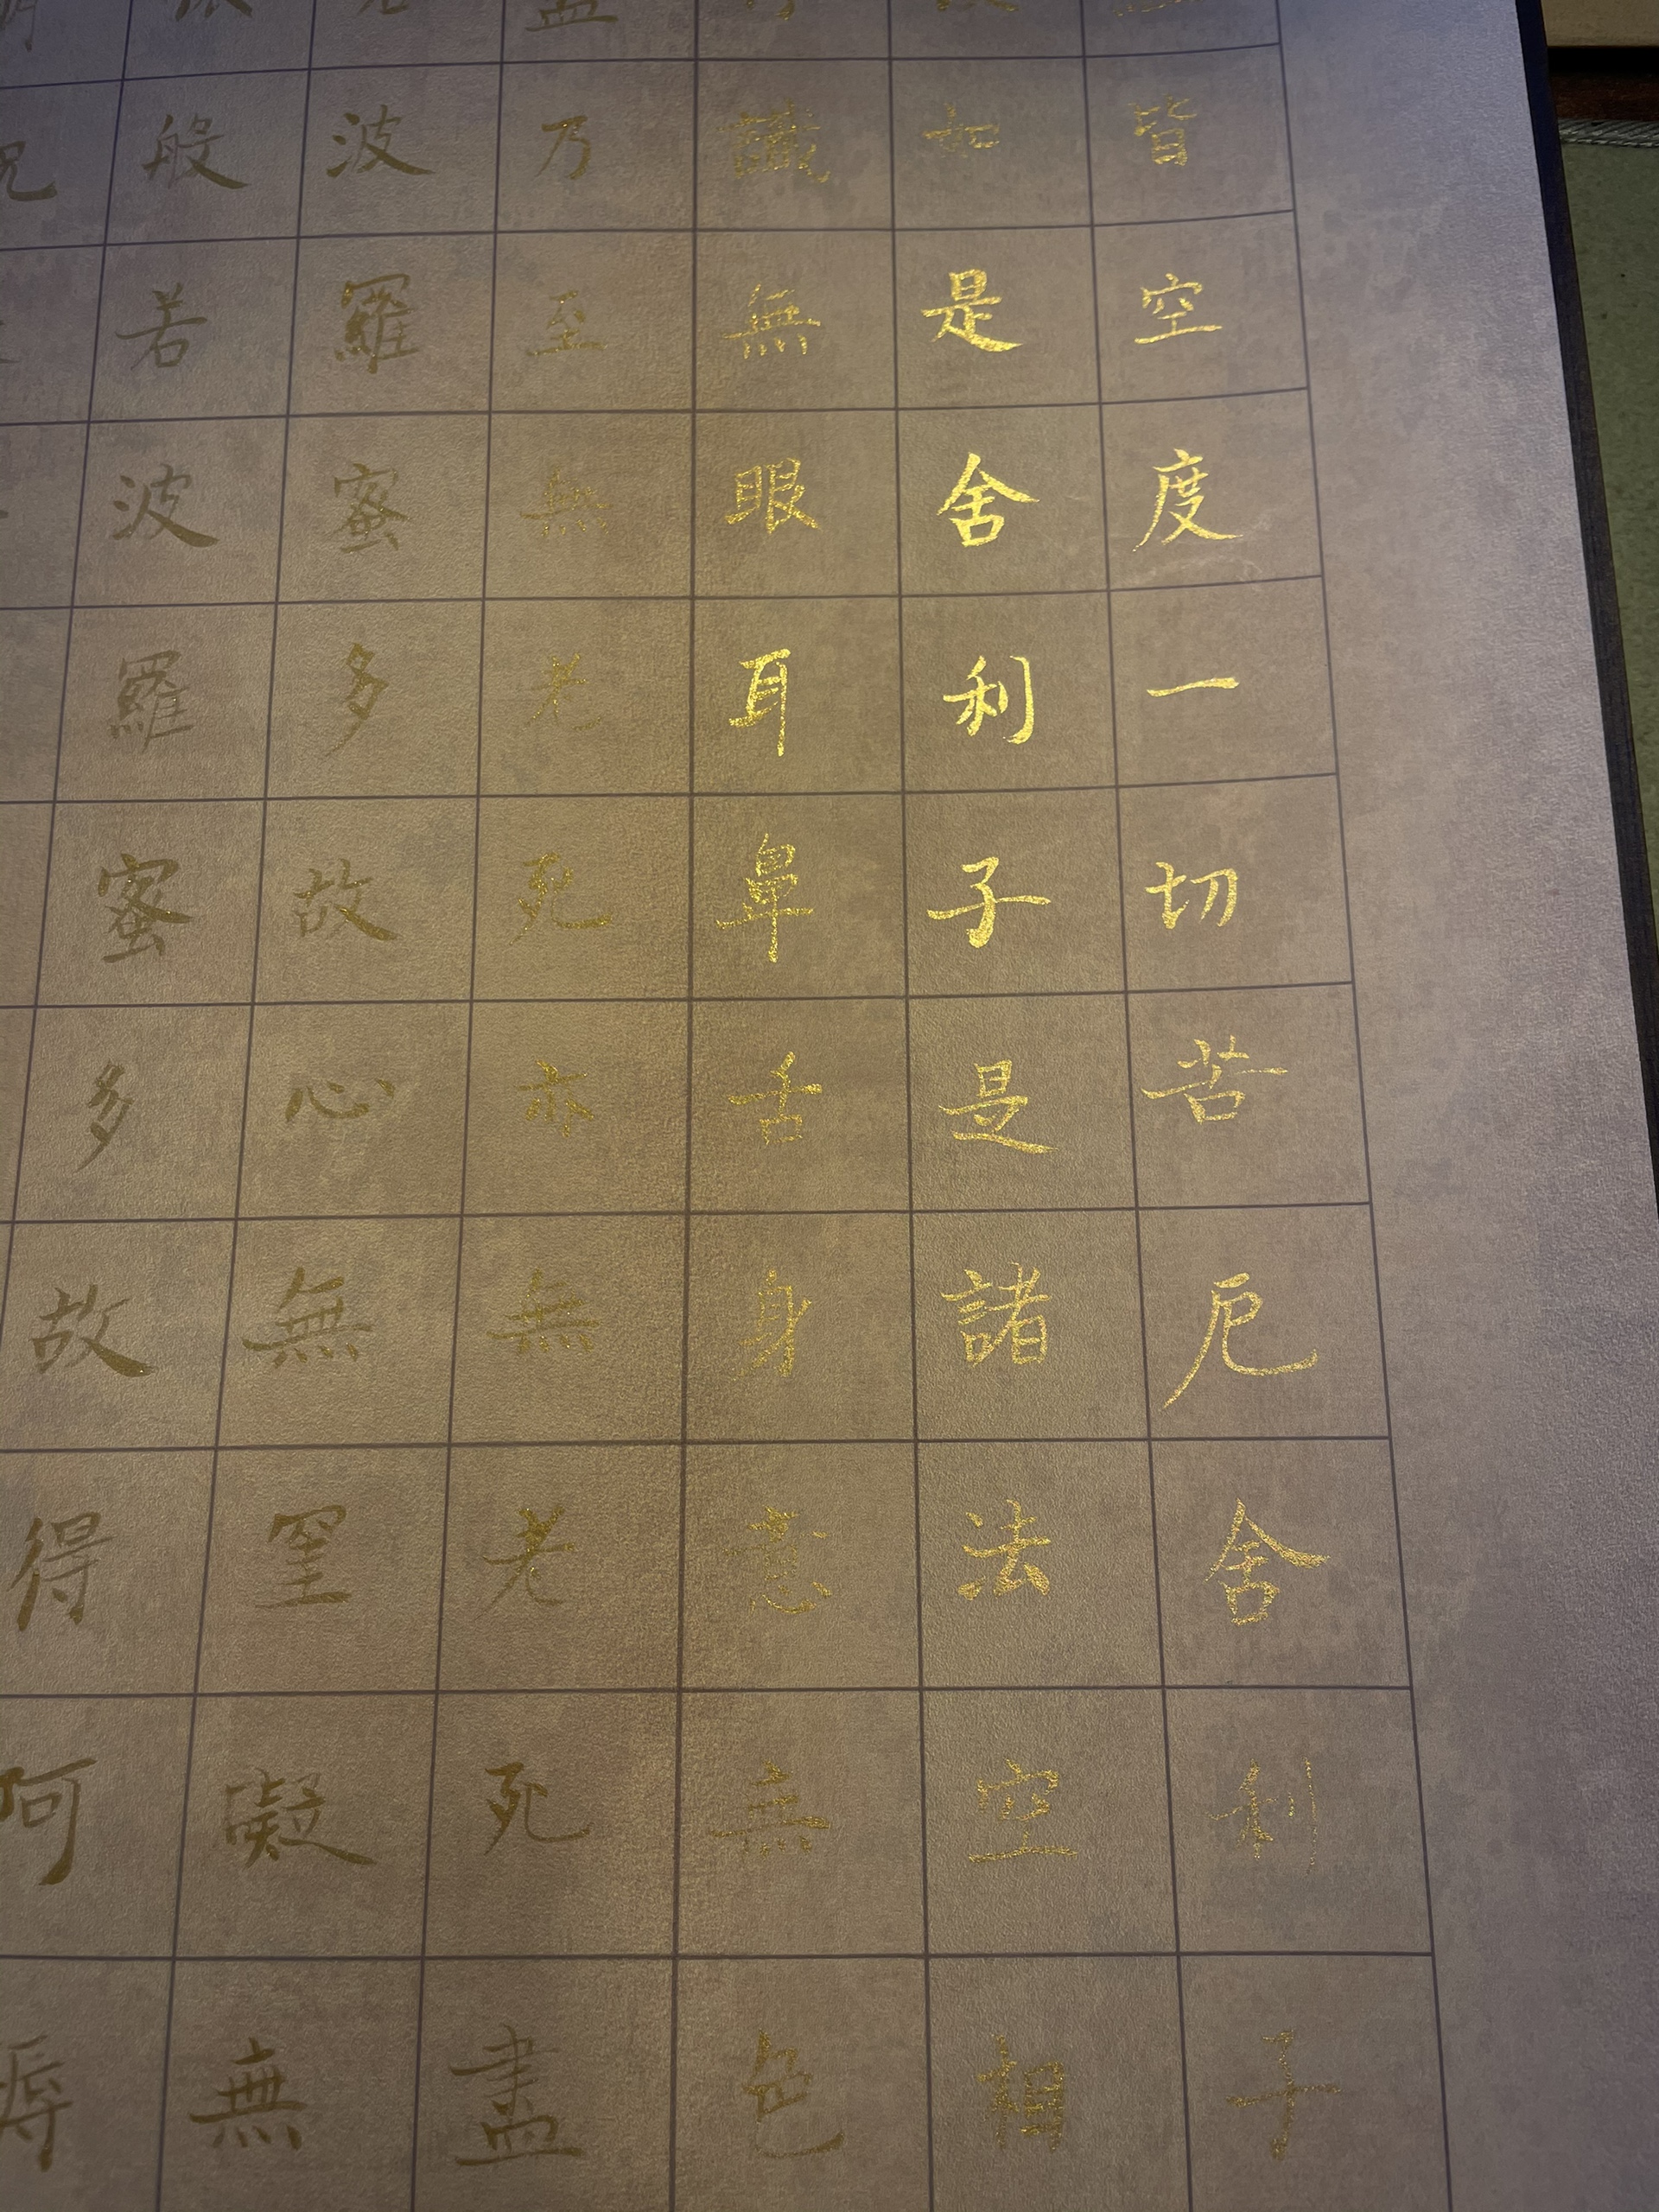 皆空度一切苦厄舍利子
如是舍利子是諸法空相
識無眼耳鼻舌身意無色
盡乃至無老死亦無老死盡
波羅蜜多故心無罣礙無
般若波羅蜜多故得阿耨